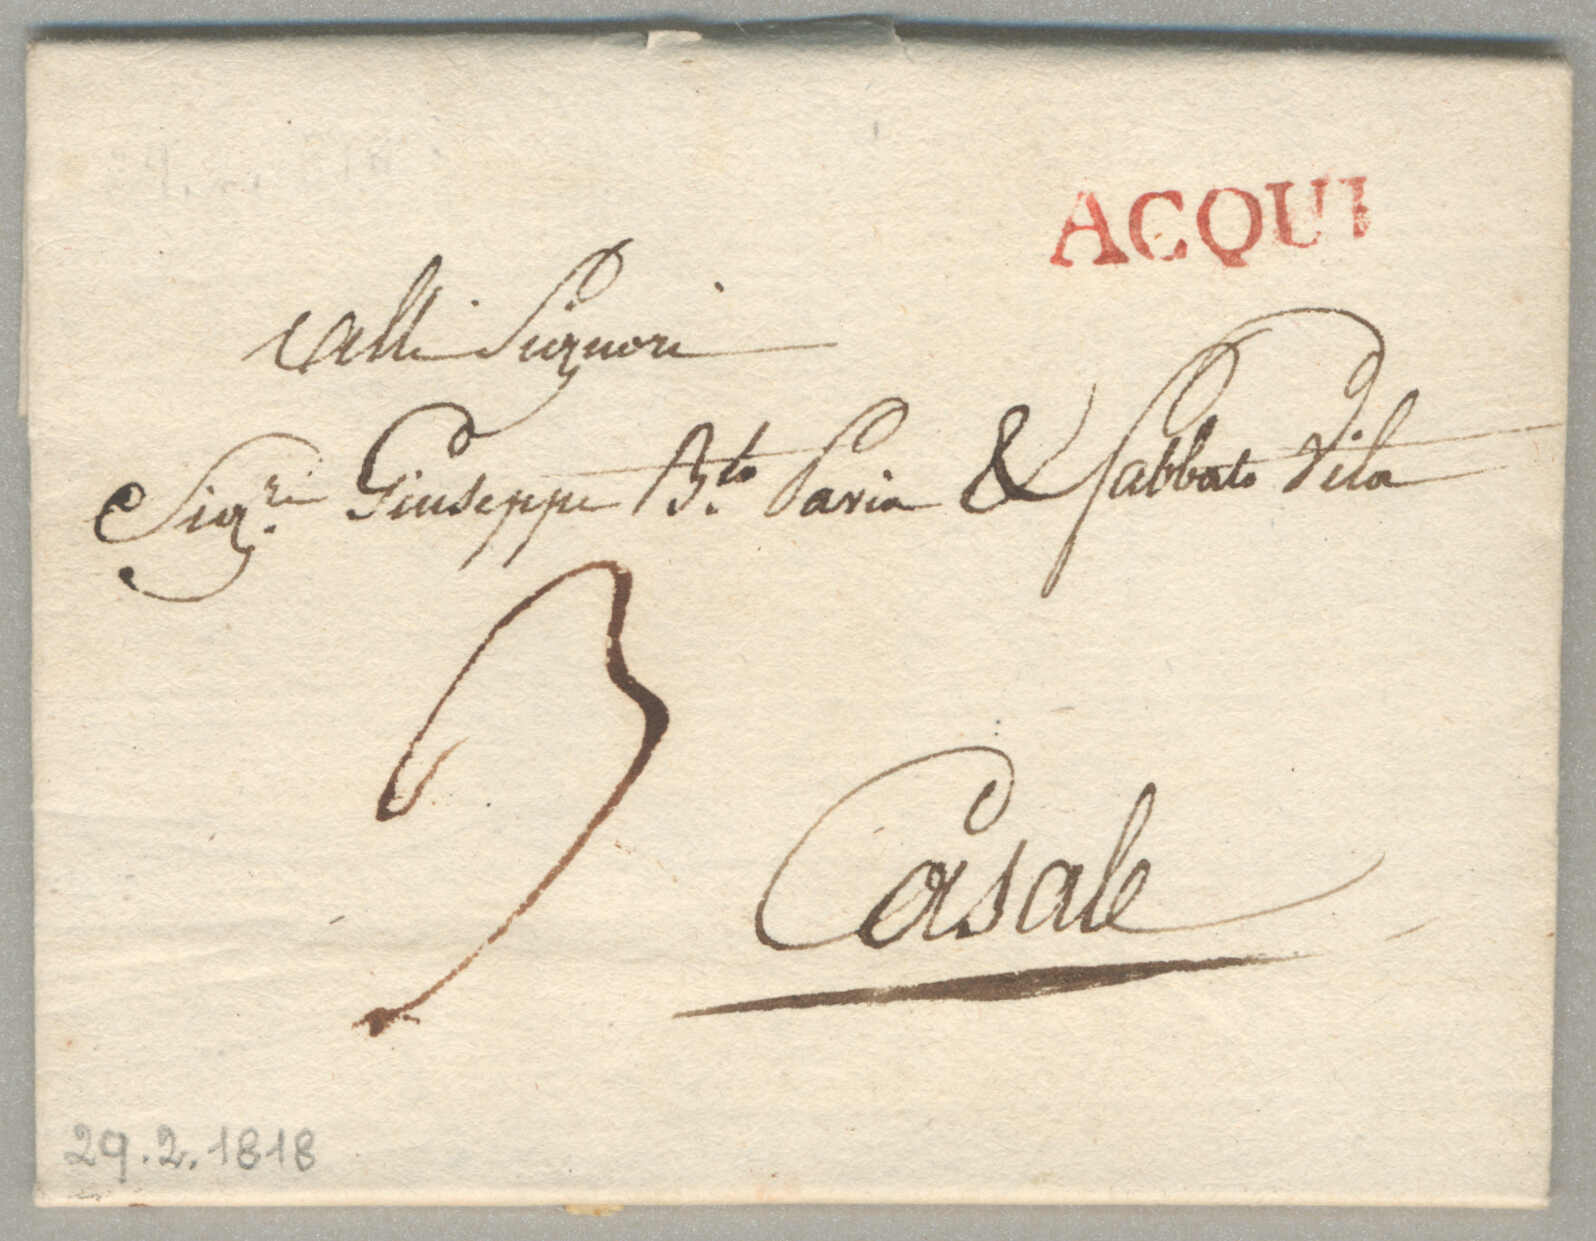 ACQUI
Alli Signori
Sig.ri Giuseppe B.to Pavia & Sabbato Vita
3
Casale
29.2.1818